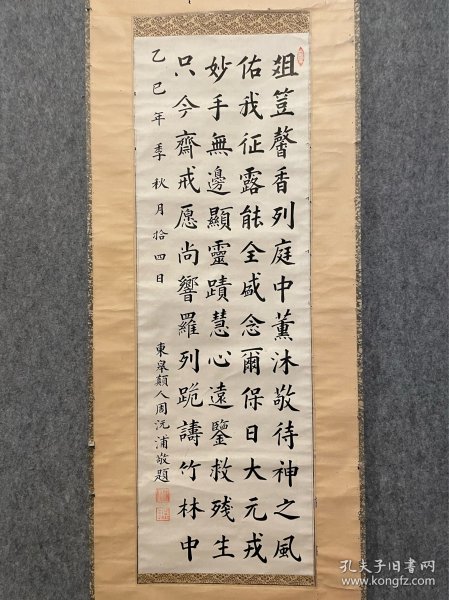 俎荳馨香列庭中薰沐敬待神之風
佑我征露能全威念爾保日大元戎
妙手無邊顯靈蹟慧心遠鑒救殘生
只今齋戒愿尚響羅列跪譸竹林中
乙巳年季秋月拾四日
東皋顛人周沅浦敬題
孔夫子旧书网
www.kongfz.com